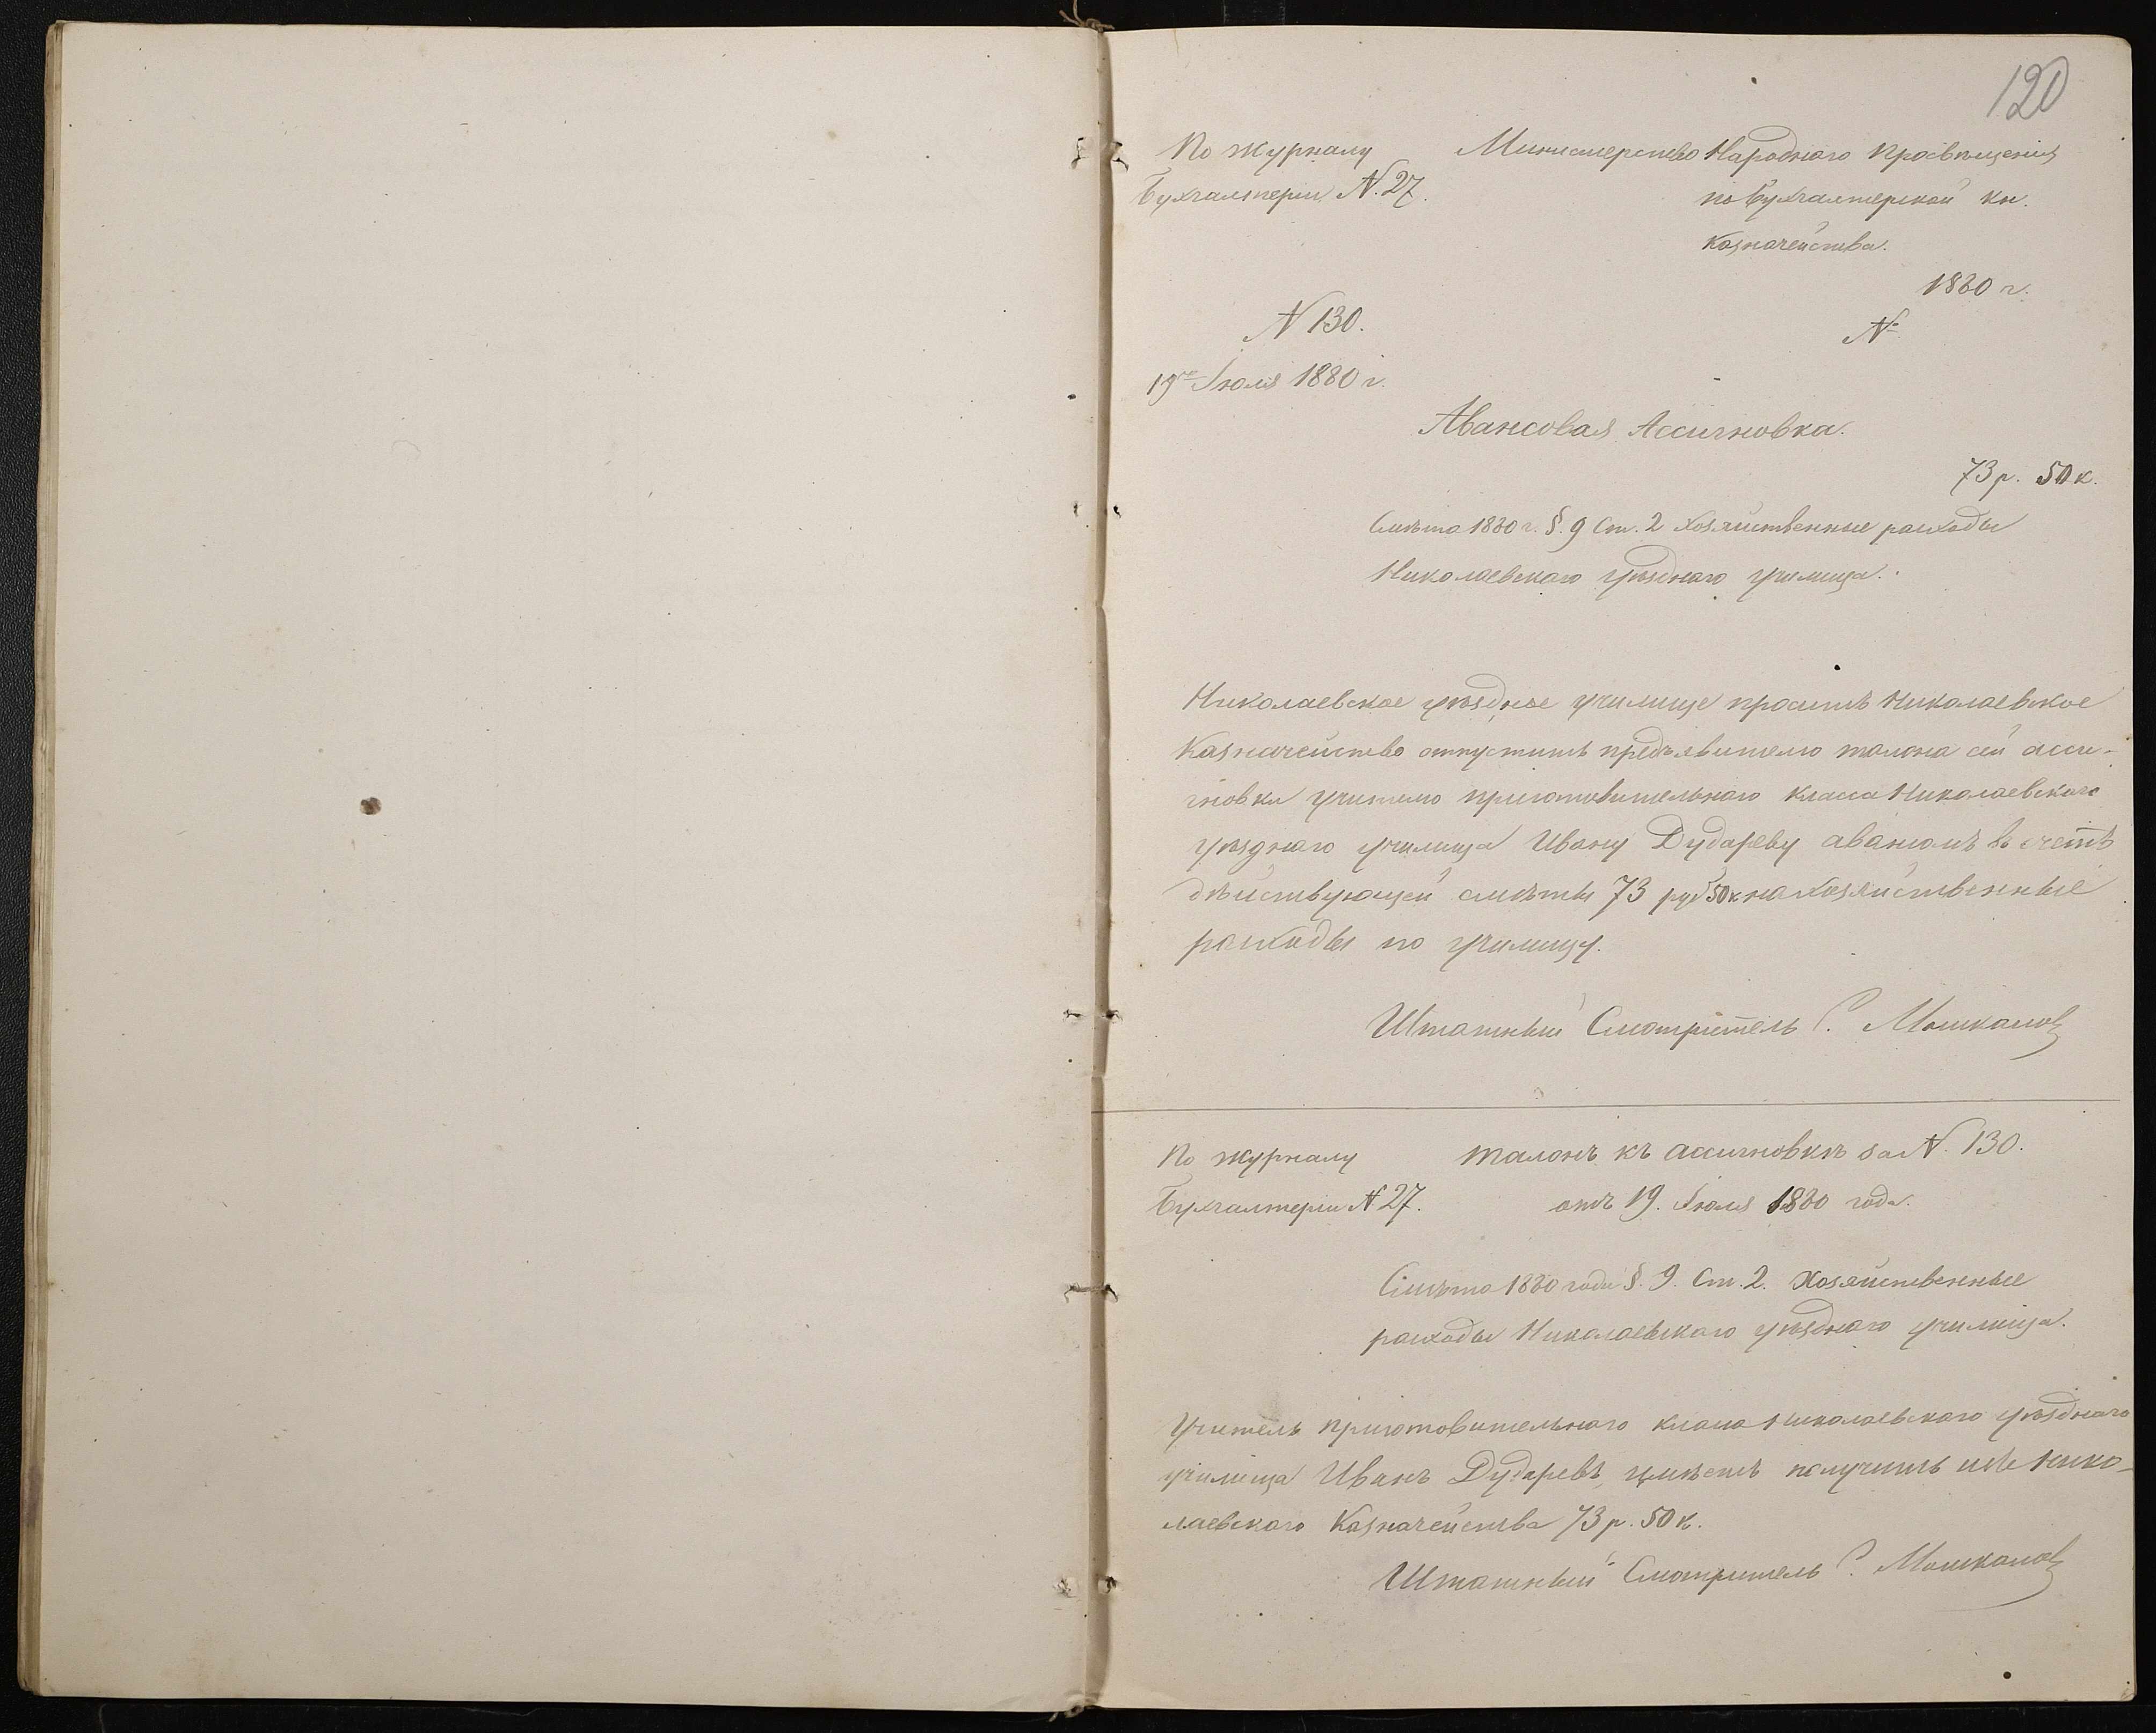 120
По журналу
Бухгалтеріи N. 27.
Министерство Народнаго Просвѣщенія
по Бухгалтерской кн.
Казначейства.
1880 г.
N
N 130.
19го Іюля 1880 г.
Авансовая Ассигновка.
73 р. 50 к.
Смѣта 1880 г. §. 9 Ст. 2 Хозяйственные расходы
Николаевскаго уѣзднаго училища.
Николаевское уѣздное училище проситъ Николаевское
Казначейство отпустить предъявителю талона сей асси-
гновки учителю приготовительнаго класса Николаевскаго
уѣзднаго училища Ивану Дудареву авансомъ въ счетъ
дѣйствующей смѣты 73 руб 50 к на хозяйственные
расходы по училищу.
Штатный Смотритель С. Мошкалов
По журналу
Бухгалтеріи N 27.
Талонъ къ ассигновкѣ за N. 130.
отъ 19. Іюля 1880 года.
Смѣта 1880 года §. 9. Ст. 2. Хозяйственные
расходы Николаевскаго уѣзднаго училища.
Учитель приготовительнаго класса Николаевскаго уѣзднаго
училища Иванъ Дударевъ, имѣетъ получить изъ Нико-
лаевскаго Казначейства 73 р. 50 к.
Штатный Смотритель С. Мошкалов